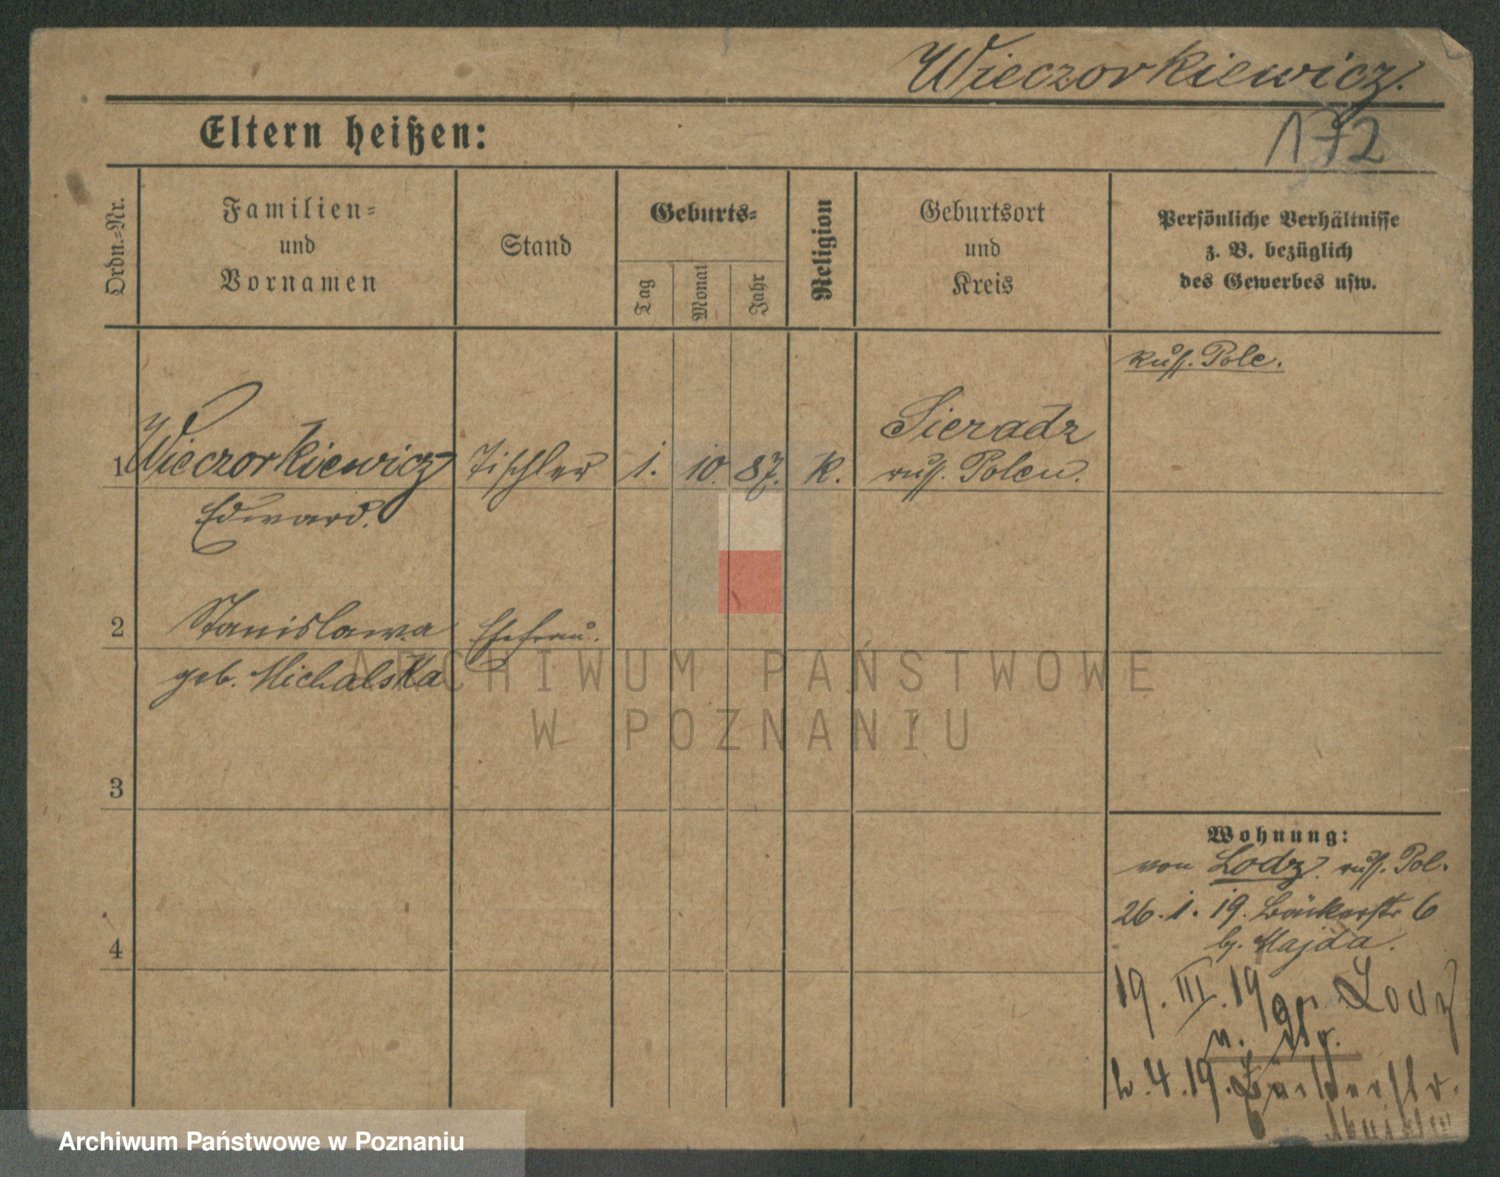 Wieczorkiewicz.
172
Eltern heißen:
Ordn.-Nr.
Familien-
und
Vornamen
Stand
Geburts-
Tag
Monat
Jahr
Religion
Geburtsort
und
Kreis
Persönliche Verhältnisse
z. B. bezüglich
des Gewerbes usw.
russ. Pole.
1 Wieczorkiewicz Tischler 1. 10. 87. K. Sieradz
russ. Polen.
Edward.
2 Stanisława Ehefrau.
geb. Michalska
3
4
Wohnung:
von Lodz. russ. Pol.
26.1.19. Bäckerstr 6
b. Majda.
19.III.19 Lodz
4.19. Bäckerstr.
ARCHIWUM PAŃSTWOWE
W POZNANIU
Archiwum Państwowe w Poznaniu